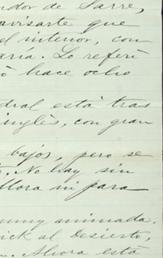 dor de Sarre,
avisarte que
el interior, con
ría. Lo referí
hace ocho
dral está tras
inglés, con gran
bajos, pero se
No hay sin
llora ni para
muy animada.
ick al Desierto,
Ahora está